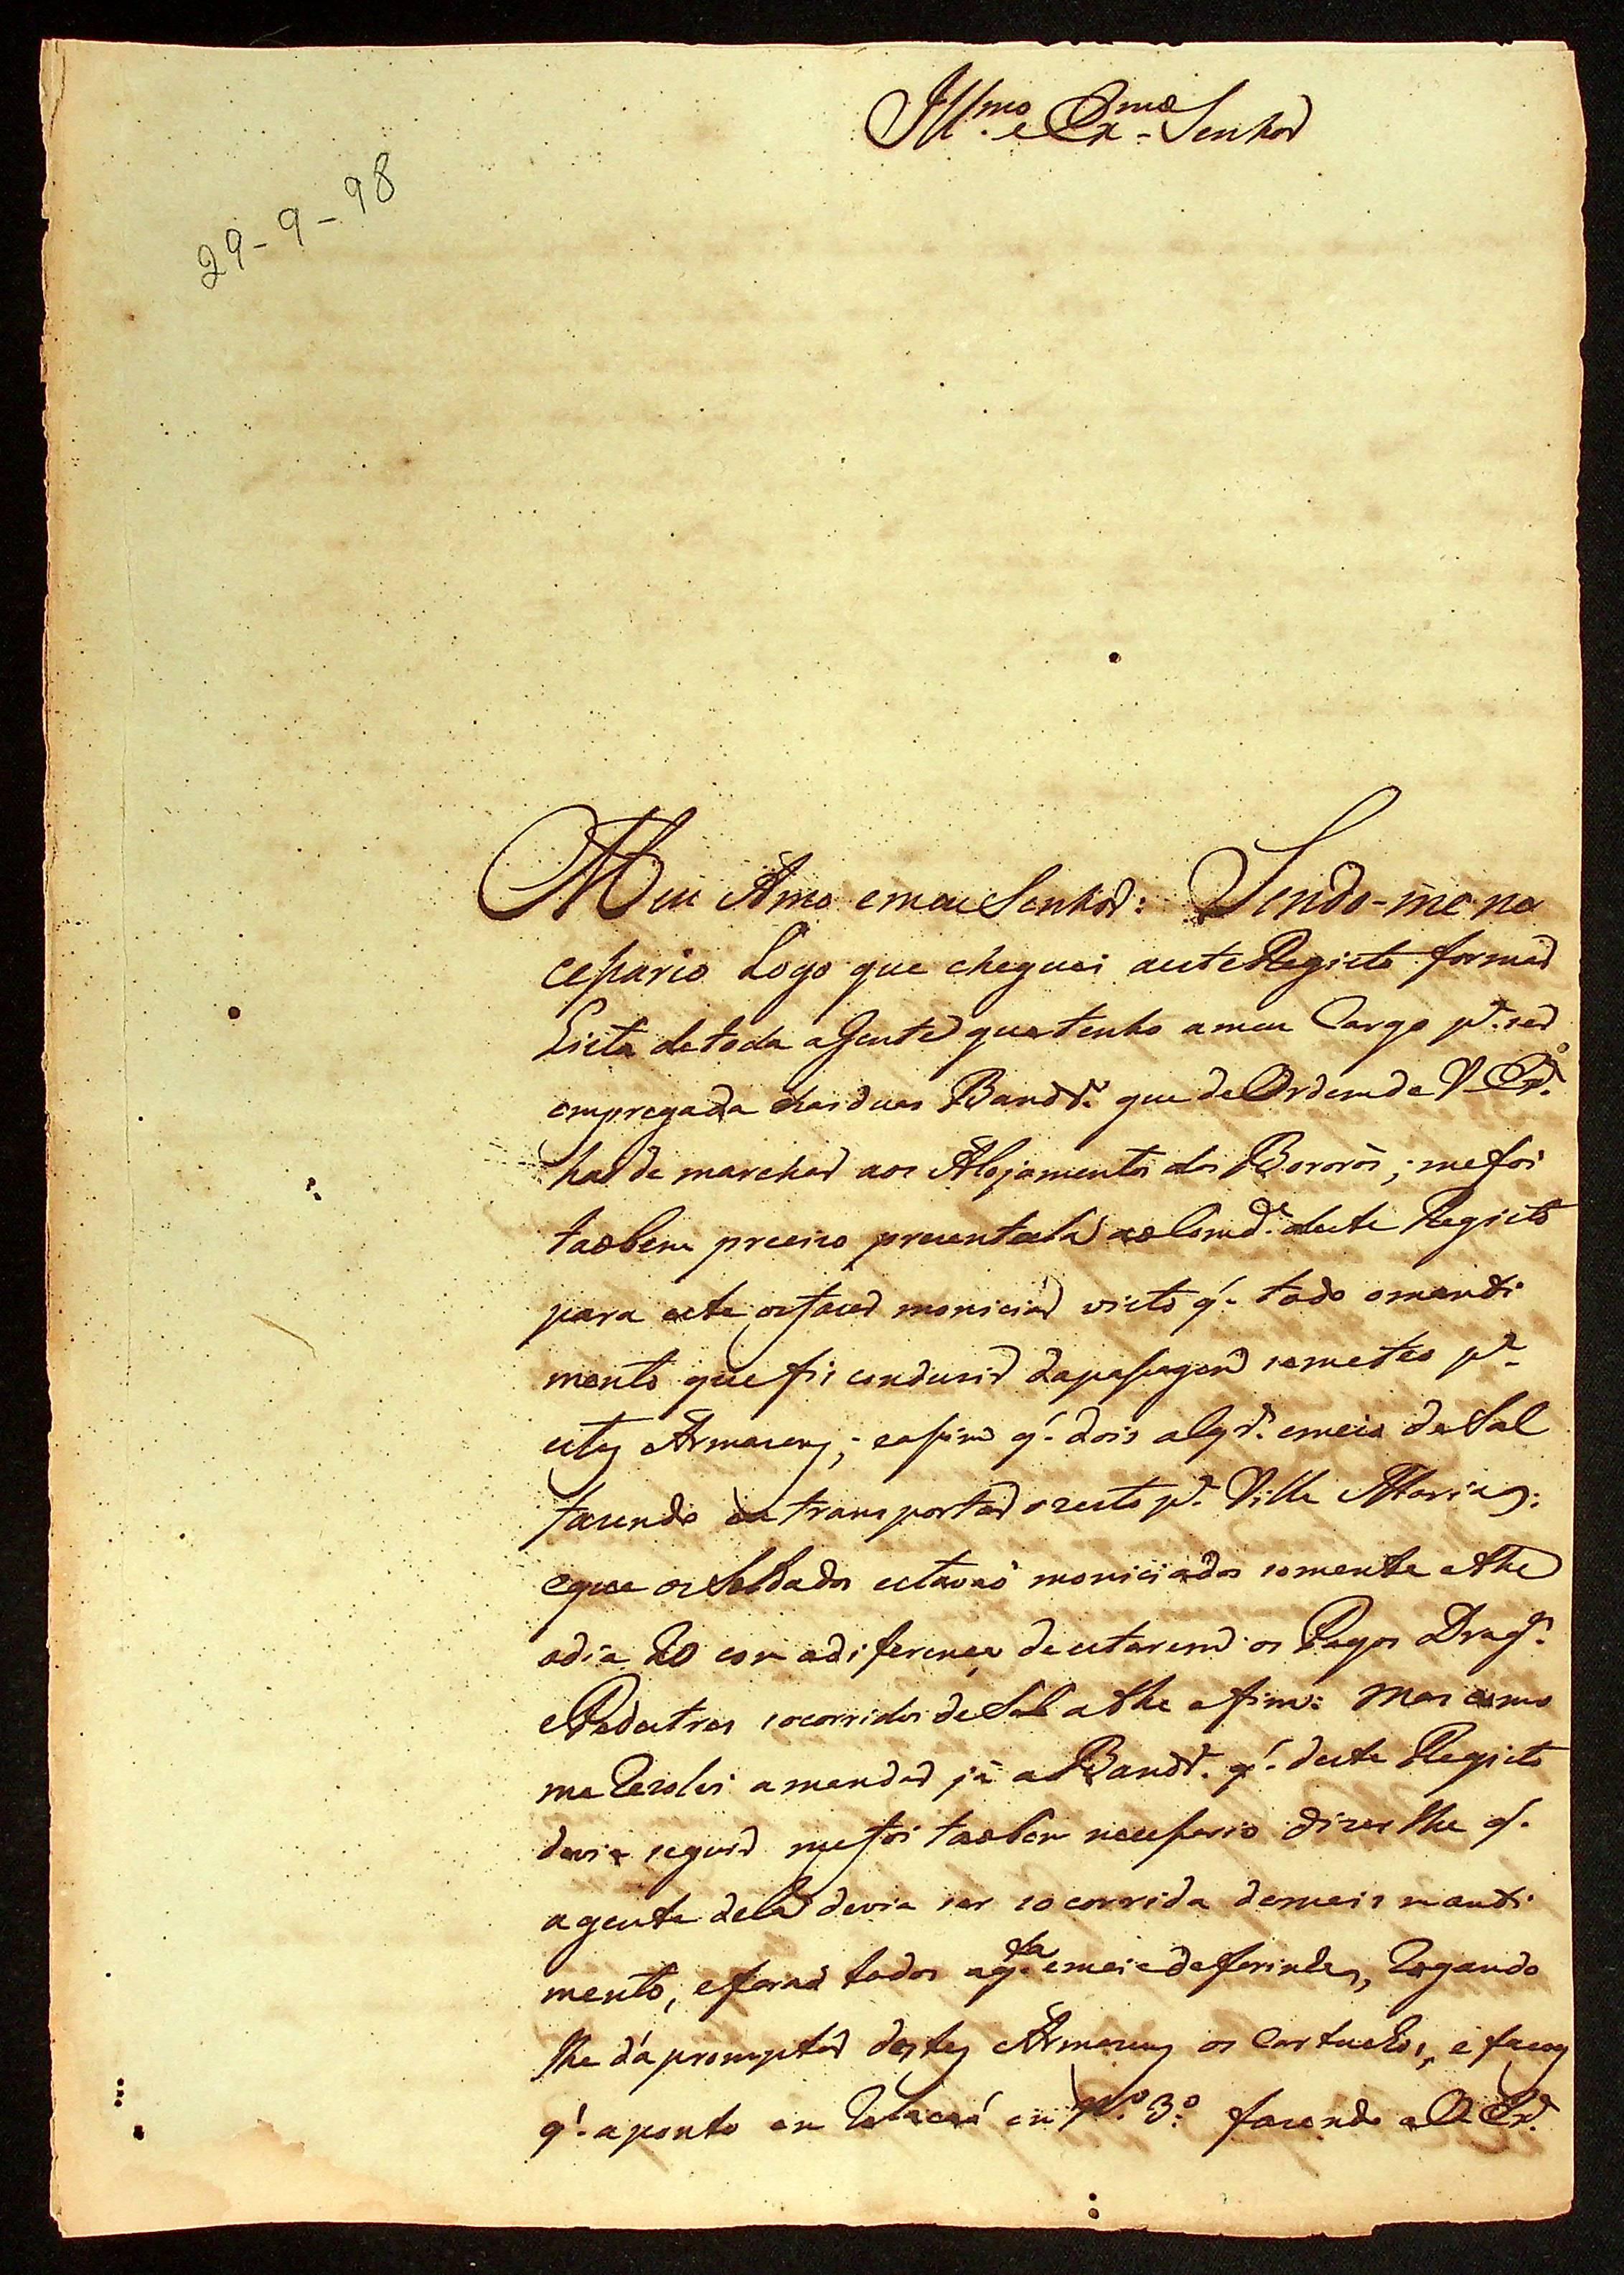 Ill.mo e Ex.mo Senhor
29-9-98
Meu Amo e meu Senhor: Sendo-me ne
cessario Logo que cheguei a este Registo formar
Lista de toda a Gente que tenho a meu Cargo p.a ser
empregada nas duas Band.as que de Ordem de V. Ex.a
haõ de marchar aos Alojamentos dos Bororós; me foi
taõbem preciso prezentala ao Com.de deste Registo
para este os fazer moniciar visto q.' todo o manti
mento que fis condusir da passagem remeteo p.a
estes Armazens; e assim q.' dois alq.s e meio de Sal
fazendo transportar o resto p.a Villa Maria:
e que os Soldados estavaõ moniciados somente athe
o dia 20 com a diferença de estarem os Pagos Drag.s
e Pedestres socorridos de Sal athe o fim: Mas como
me Resolvi a mandar já a Band.a q.' deste Registo
devia seguir me foi taõbem necessario dizer lhe q.'
a gente dela devia ser socorrida de mais manti
mento, e foraõ todos a q.ta e meia de farinha, Rogando
lhe dá promptar destes Armazens os Cartuxos, e facas
q.' aponto em Relaçaõ em N.o 3.o fazendo a V. Ex.a